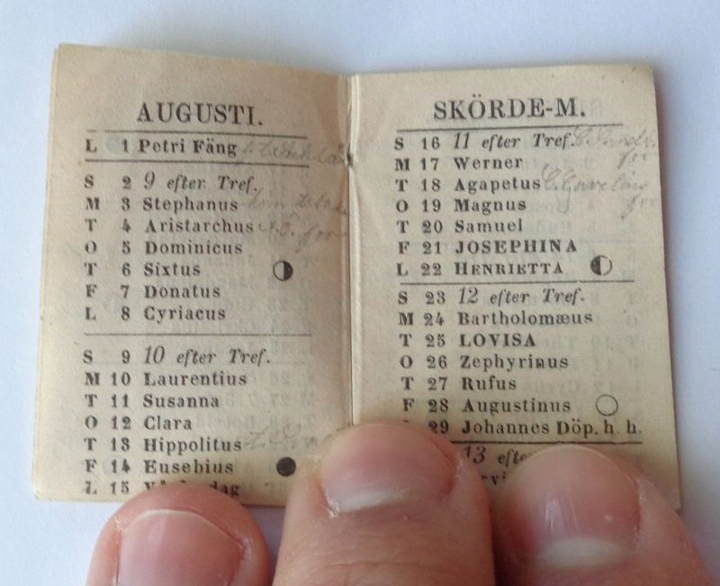 AUGUSTI.
L 1 Petri Fäng
S 2 9 efter Tref.
M 3 Stephanus
T 4 Aristarchus
O 5 Dominicus
T 6 Sixtus
F 7 Donatus
L 8 Cyriacus
S 9 10 efter Tref.
M 10 Laurentius
T 11 Susanna
O 12 Clara
T 13 Hippolitus
F 14 Eusebius
L 15
SKÖRDE-M.
S 16 11 efter Tref.
M 17 Werner
T 18 Agapetus
O 19 Magnus
T 20 Samuel
F 21 JOSEPHINA
L 22 HENRIETTA
S 23 12 efter Tref.
M 24 Bartholomæus
T 25 LOVISA
O 26 Zephyrinus
T 27 Rufus
F 28 Augustinus
29 Johannes Döp. h. h.
13